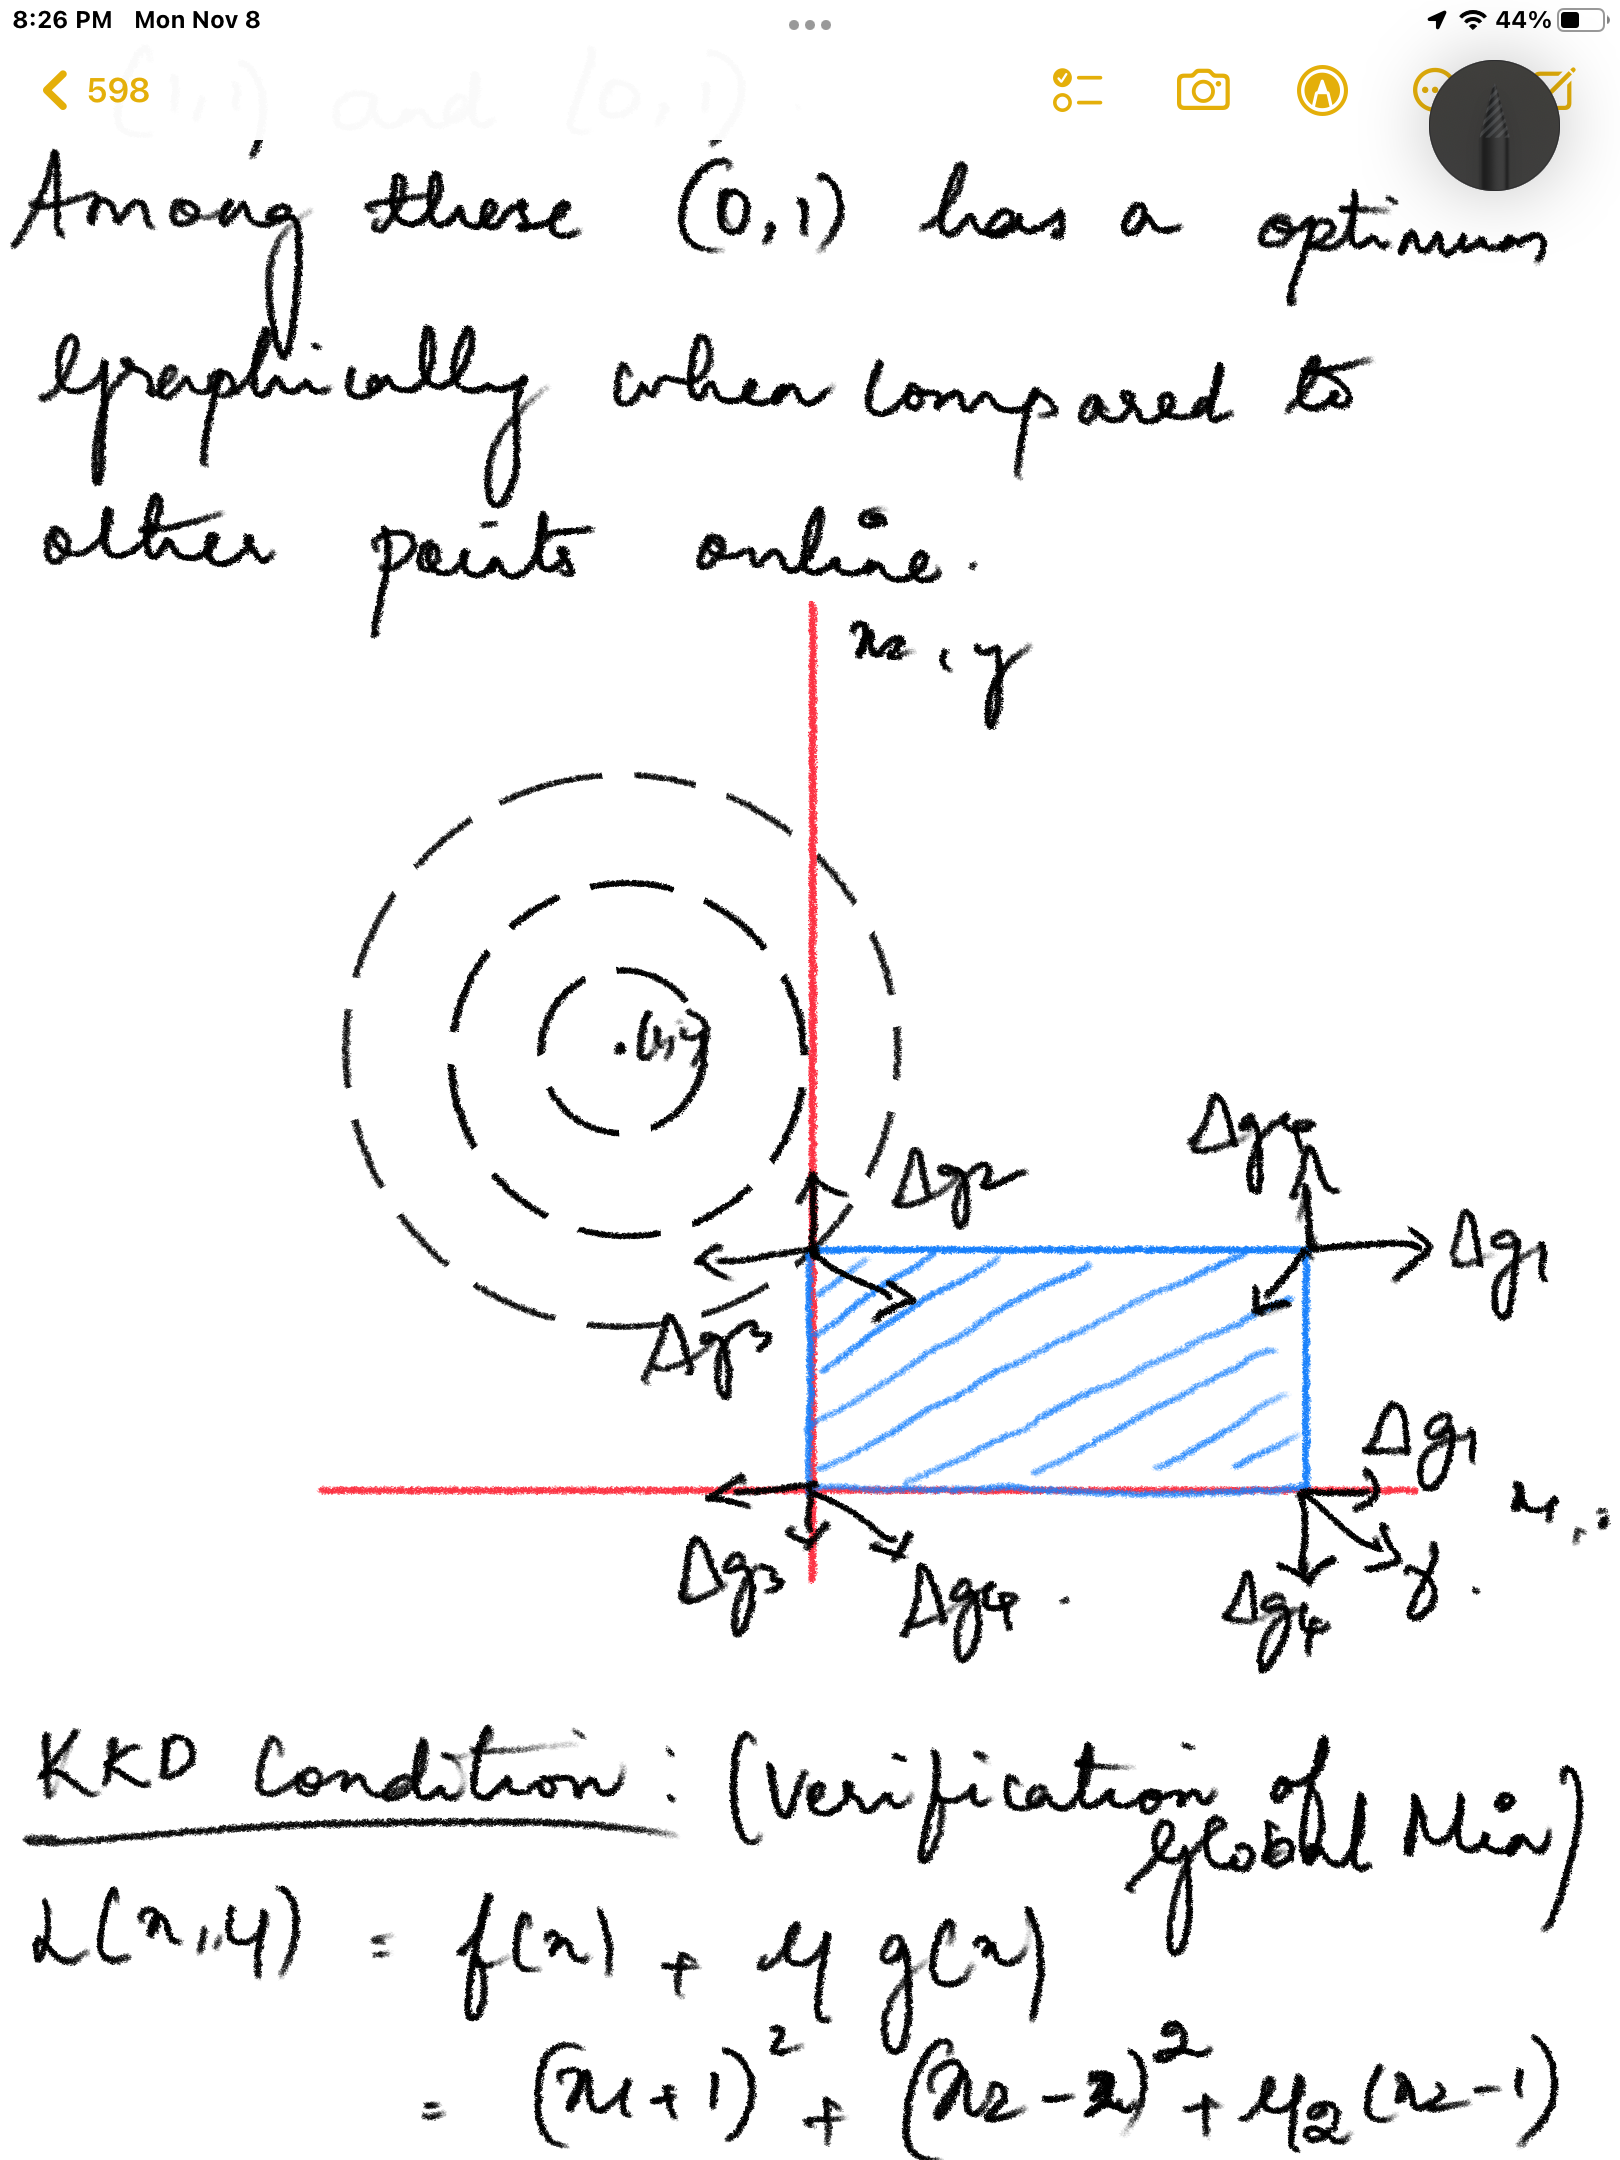 8:26 PM Mon Nov 8
44%
598
(1,1) and (0,1)
Among these (0,1) has a optimum
graphically when compared to
other points online.
x2, y
Δg2
Δg4
Δg1
Δg3
Δg1
x1,
Δg3
Δg4
Δg4
γ.
KKD Condition: (Verification of
global Min)
L(x,μ) = f(x) + μ g(x)
= (x1+1)² + (x2-2)² + μ2 (x2-1)